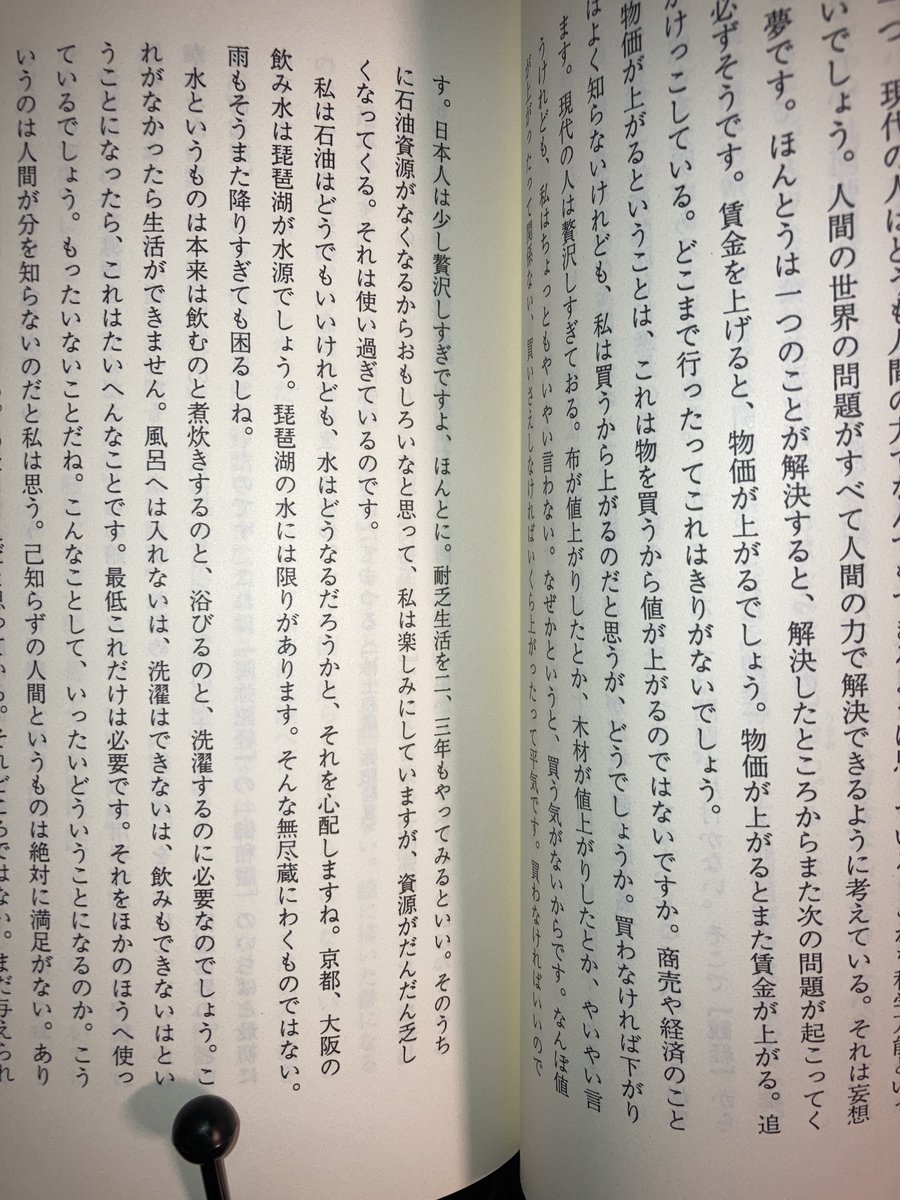 現代の人はとても人間の力でなんでもできるように思
いでしょう。人間の世界の問題がすべて人間の力で解決できるように考えている。それは妄想
夢です。ほんとうは一つのことが解決すると、解決したところからまた次の問題が起こってく
必ずそうです。賃金を上げると、物価が上がるでしょう。物価が上がるとまた賃金が上がる。追
かけっこしている。どこまで行ったってこれはきりがないでしょう。
物価が上がるということは、これは物を買うから値が上がるのではないですか。商売や経済のこと
はよく知らないけれども、私は買うから上がるのだと思うが、どうでしょうか。買わなければ下がり
ます。現代の人は贅沢しすぎておる。布が値上がりしたとか、木材が値上がりしたとか、やいやい言
うけれども、私はちょっともやいやい言わない。なぜかというと、買う気がないからです。なんぼ値
が上がったって関係ない、買いさえしなければいくら上がったって平気です。買わなければいいので
す。日本人は少し贅沢しすぎですよ、ほんとに。耐乏生活を二、三年もやってみるといい。そのうち
に石油資源がなくなるからおもしろいなと思って、私は楽しみにしていますが、資源がだんだん乏し
くなってくる。それは使い過ぎているのです。
私は石油はどうでもいいけれども、水はどうなるだろうかと、それを心配しますね。京都、大阪の
飲み水は琵琶湖が水源でしょう。琵琶湖の水には限りがあります。そんな無尽蔵にわくものではない。
雨もそうまた降りすぎても困るしね。
水というものは本来は飲むのと煮炊きするのと、浴びるのと、洗濯するのに必要なのでしょう。こ
れがなかったら生活ができません。風呂へは入れないは、洗濯はできないは、飲みもできないはとい
うことになったら、これはたいへんなことです。最低これだけは必要です。それをほかのほうへ使っ
ているでしょう。もったいないことだね。こんなことして、いったいどういうことになるのか。こう
いうのは人間が分を知らないのだと私は思う。己知らずの人間というものは絶対に満足がない。あり
と思っている。それどころではない。まだ与えられ